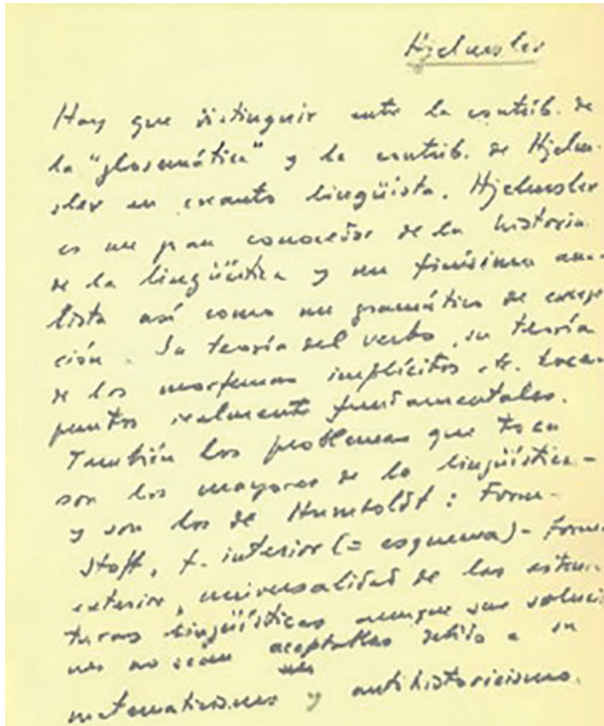 Hjelmslev
Hay que distinguir entre la contrib. de
la "glosemática" y la contrib. de Hjelm-
slev en cuanto lingüista. Hjelmslev
es un gran conocedor de la historia
de la lingüística y un finísimo ana-
lista así como un gramático de excep-
ción. Su teoría del verbo, su teoría
de los morfemas implícitos, etc. tocan
puntos realmente fundamentales.
También los problemas que toca
son los mayores de la lingüística -
y son los de Humboldt: Form -
Stoff, f. interior (= esquema) - forma
exterior, universalidad de las estruc-
turas lingüísticas aunque sus solucio
nes no sean aceptables debido a su
matematismo y antihistoricismo.